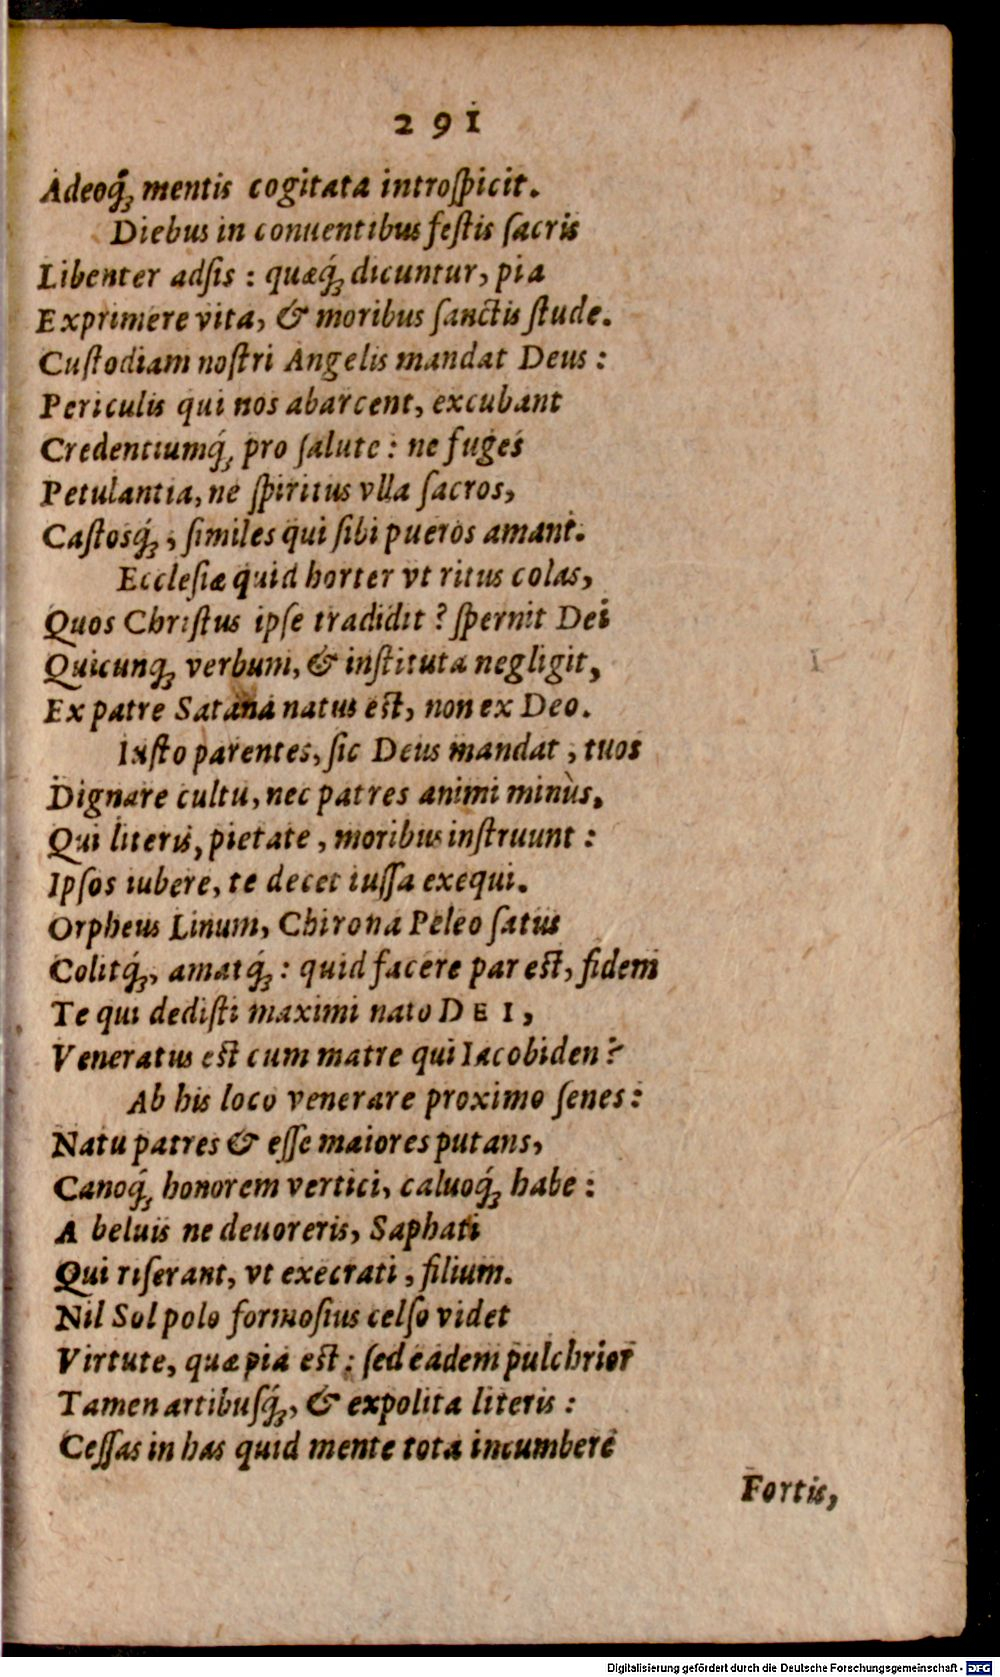 291
Adeoq́ꝫ mentis cogitata introſpicit.
Diebus in conuentibus feſtis ſacris
Libenter adſis : quæq́ꝫ dicuntur, pia
Exprimere vita, & moribus ſanctis ſtude.
Cuſtodiam noſtri Angelis mandat Deus :
Periculis qui nos abarcent, excubant
Credentiumq́ꝫ pro ſalute : ne fuges
Petulantia, ne ſpiritus vlla ſacros,
Caſtosq́ꝫ, ſimiles qui ſibi pueros amant.
Eccleſiæ quid horter vt ritus colas,
Quos Chriſtus ipſe tradidit ? ſpernit Dei
Quicunqꝫ verbum, & inſtituta negligit,
Ex patre Satana natus eſt, non ex Deo.
Iuſto parentes, ſic Deus mandat, tuos
Dignare cultu, nec patres animi minùs,
Qui literis, pietate, moribus inſtruunt :
Ipſos iubere, te decet iuſſa exequi.
Orpheus Linum, Chirona Peleo ſatus
Colitq́ꝫ, amatq́ꝫ : quid facere par eſt, fidem
Te qui dediſti maximi nato DEI,
Veneratus eſt cum matre qui Iacobiden ?
Ab his loco venerare proximo ſenes :
Natu patres & eſſe maiores putans,
Canoq́ꝫ honorem vertici, caluoq́ꝫ habe :
A beluis ne deuoreris, Saphati
Qui riſerant, vt execrati, filium.
Nil Sol polo formoſius celſo videt
Virtute, quæ pia eſt : ſed eadem pulchrior
Tamen artibuſq́ꝫ, & expolita literis :
Ceſſas in has quid mente tota incumbere
Fortis,
Digitalisierung gefördert durch die Deutsche Forschungsgemeinschaft - DFG